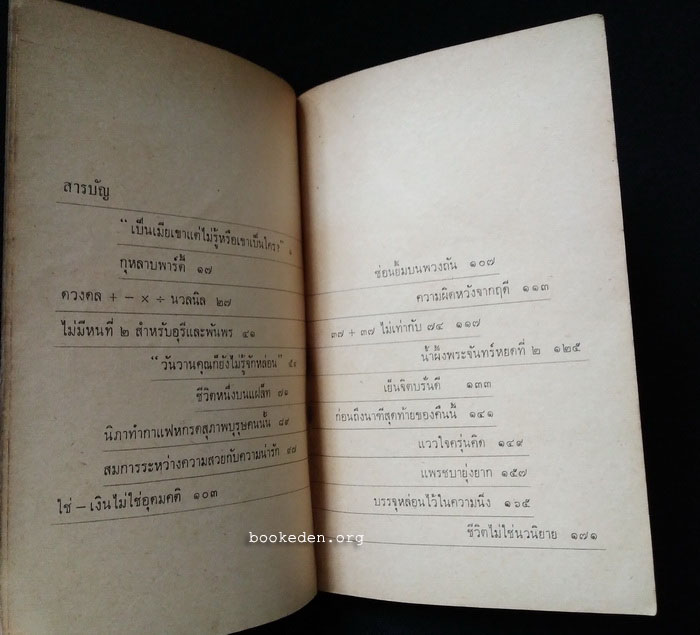 สารบัญ
“เป็นเมียเขาแต่ไม่รู้หรือเขาเป็นใคร?”
กุหลาบพาร์ตี้ ๑๗
ดวงดล + − × ÷ นวลนิล ๒๗
ไม่มีหนที่ ๒ สำหรับอุรีและพันพร ๔๑
“วันวานคุณก็ยังไม่รู้จักหล่อน” ๕๔
ชีวิตหนึ่งบนแฝล็ท ๗๑
นิภาทำกาแฟหกรดสุภาพบุรุษคนนั้น ๘๙
สมการระหว่างความสวยกับความน่ารัก ๙๗
ใช่ – เงินไม่ใช่อุดมคติ ๑๐๓
ซ่อนยิ้มบนพวงถัน ๑๐๗
ความผิดหวังจากฤดี ๑๑๓
๓๗ + ๓๗ ไม่เท่ากับ ๗๔ ๑๑๗
น้ำผึ้งพระจันทร์หยดที่ ๒ ๑๒๕
เย็นจิตบรั่นดี ๑๓๓
ก่อนถึงนาทีสุดท้ายของคืนนี้ ๑๔๑
แววใจครุ่นคิด ๑๔๙
แพรชบายุ่งยาก ๑๕๗
บรรจุหล่อนไว้ในความนึ่ง ๑๖๕
ชีวิตไม่ใช่นวนิยาย ๑๗๑
bookeden.org